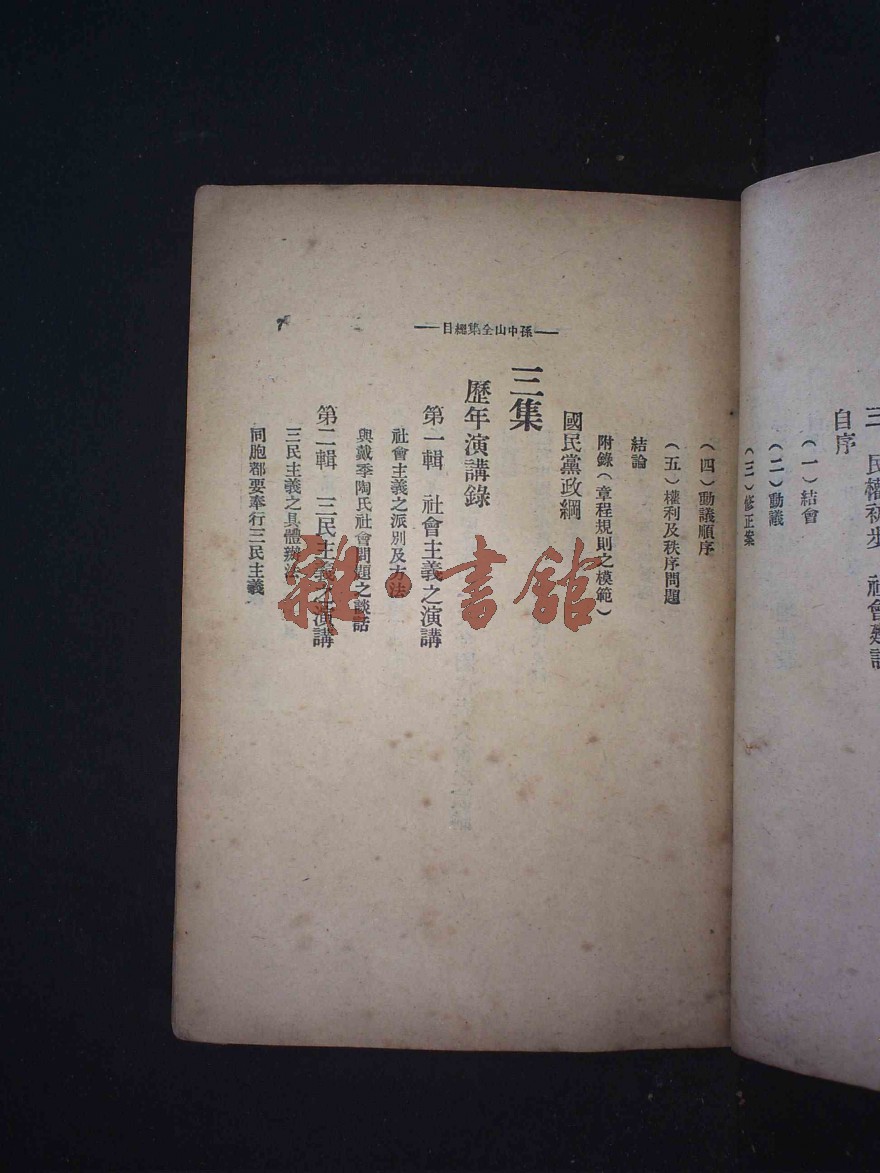 三　民權初步　社會建設
自序
（一）結會
（二）動議
（三）修正案
孫中山全集總目
（四）動議順序
（五）權利及秩序問題
結論
附錄（章程規則之模範）
國民黨政綱
三集
歷年演講錄
第一輯　社會主義之演講
社會主義之派別及方法
與戴季陶氏社會問題之談話
第二輯　三民主義之演講
三民主義之具體辦法
同胞都要奉行三民主義
7
雜·書館